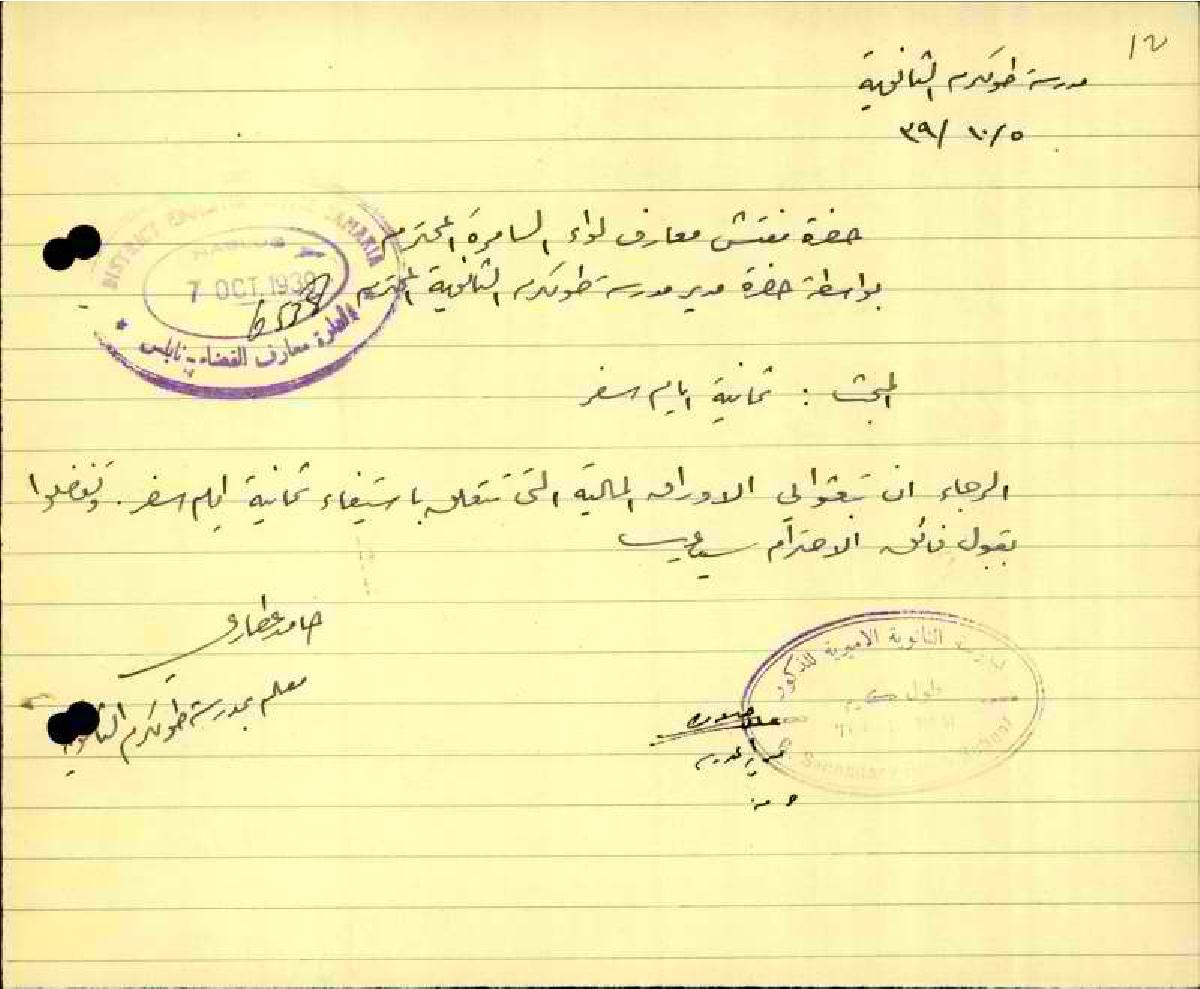 ١٢
مدرسة طولكرم الثانوية
٣٩/ ١٠/ ٥
حضرة مفتش معارف لواء السامرة المحترم
بواسطة حضرة مدير مدرسة طولكرم الثانوية المحترم
DISTRICT EDUCATION OFFICE SAMARIA
NABLUS
7 OCT 1939
معارف القضاء نابلس
المبحث : ثمانية ايام سفر
الرجاء ان تبعثوا لي الاوراق المالية التي تتعلق باستيفاء ثمانية ايام سفر. وتفضلوا
بقبول فائق الاحترام سيدي
حامد عطاري
معلم بمدرسة طولكرم الثانوية
المدرسة الثانوية الاميرية للذكور
طول كرم
Secondary School